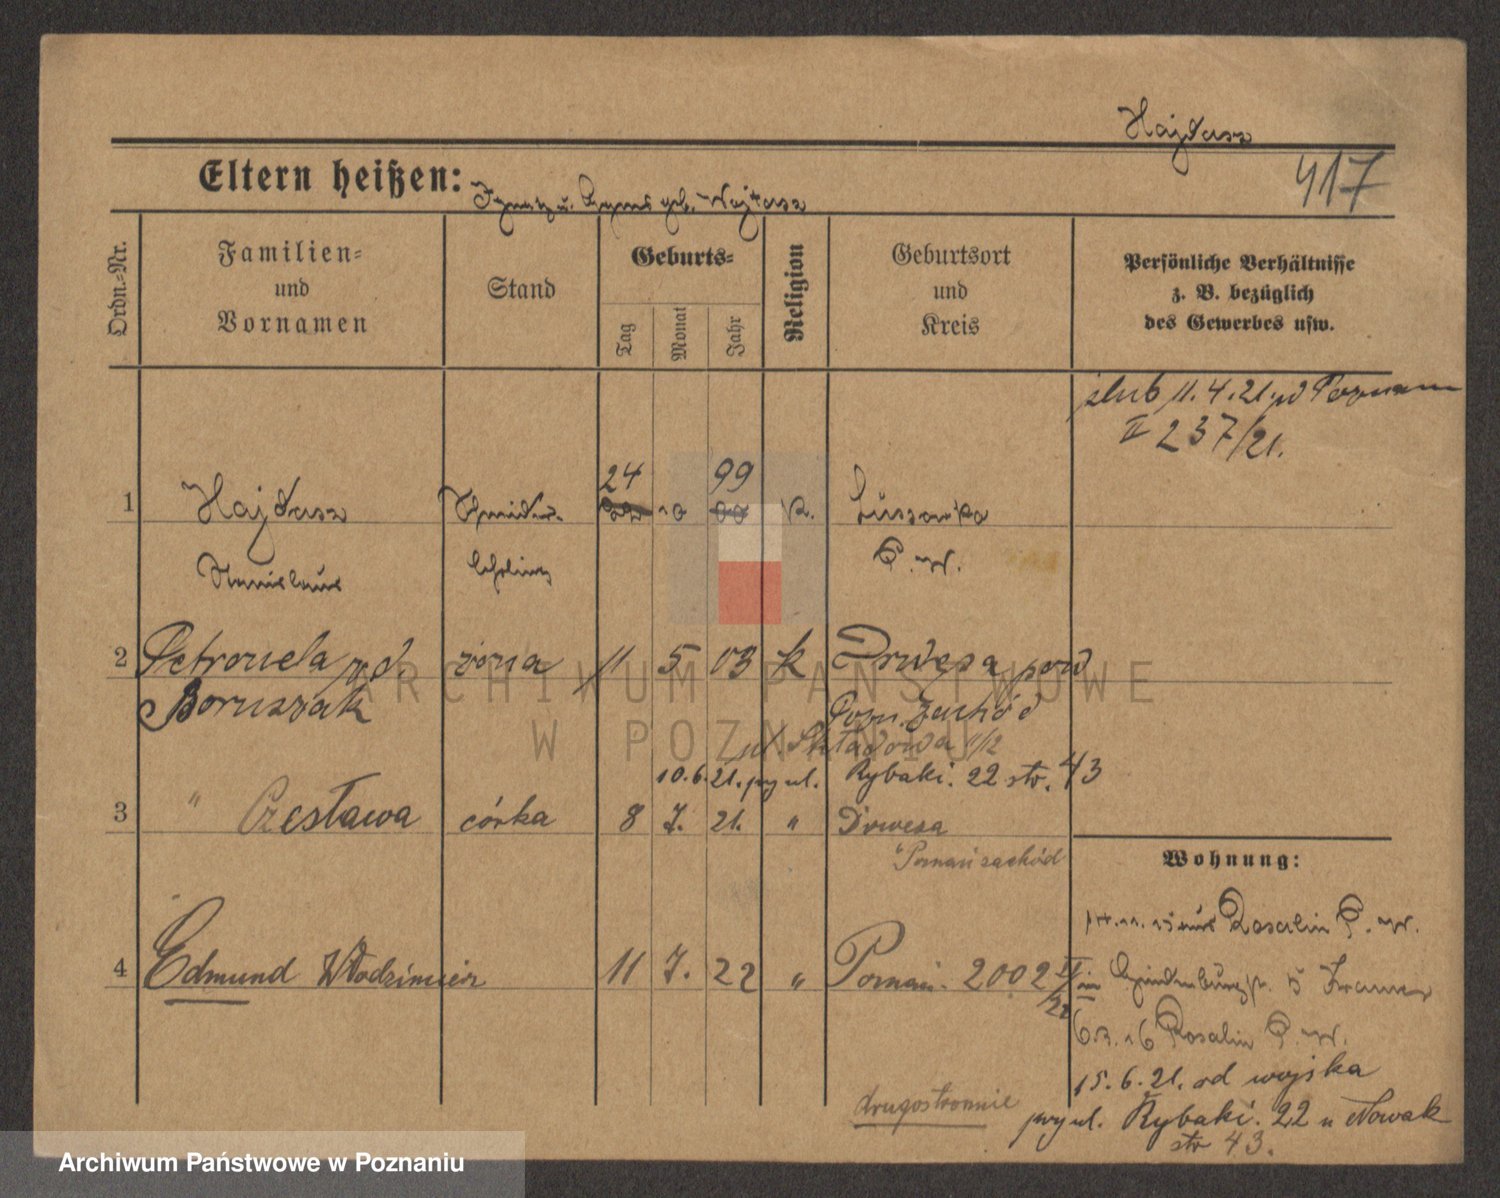 Hajdasz
417
Eltern heißen: Ignatz u. Agnes geb. Wojtasz
Ordn.-Nr.
Familien-
und
Vornamen
Stand
Geburts-
Tag
Monat
Jahr
Religion
Geburtsort
und
Kreis
Persönliche Verhältnisse
z. B. bezüglich
des Gewerbes usw.
ślub 11.4.21. w Poznaniu
II 237/21.
24 99
1 Hajdasz 10 K. Lussowko
Stanislaus lehrling P. W.
2 Petronela z d. żona 11 5 03 k Drwęsa pow
Boruszak Pozn. Zachód
ul. Składowa 11/2
10.6.21. przy ul. Rybaki. 22 str. 43
3 " Czesława córka 8 7. 21. " Drwęsa
"Poznań zachód
Wohnung:
Rosalin P. W.
4 Edmund Włodzimierz 11 7. 22 " Poznań. 2002 II/22
Hindenburgstr. 5
6.3.16 Rosalin P. W.
15.6.21. od wojska
drugostronnie
przy ul. Rybaki. 22 u Nowak
str 43.
ARCHIWUM PAŃSTWOWE
W POZNANIU
Archiwum Państwowe w Poznaniu